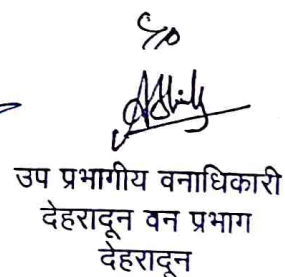 उप प्रभागीय वनाधिकारी
देहरादून वन प्रभाग
देहरादून